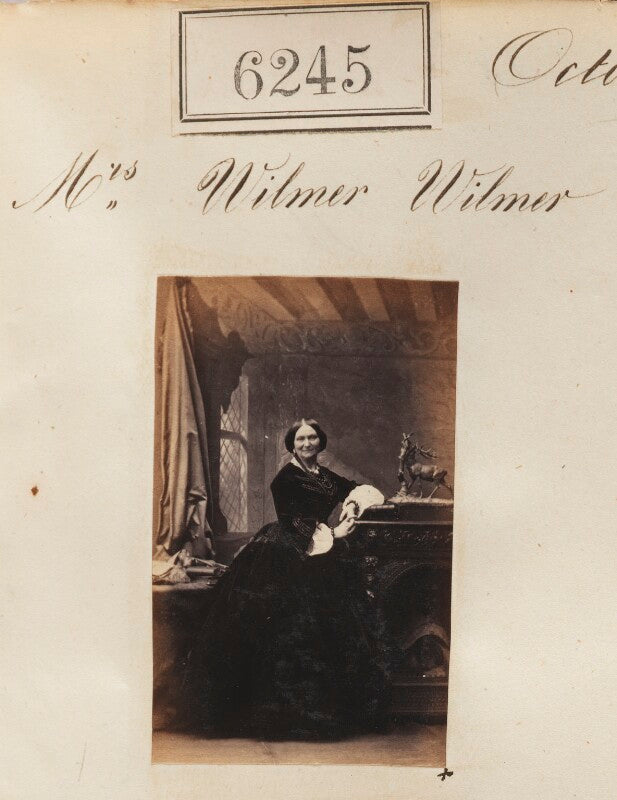 6245
Octo
Mrs Wilmer Wilmer